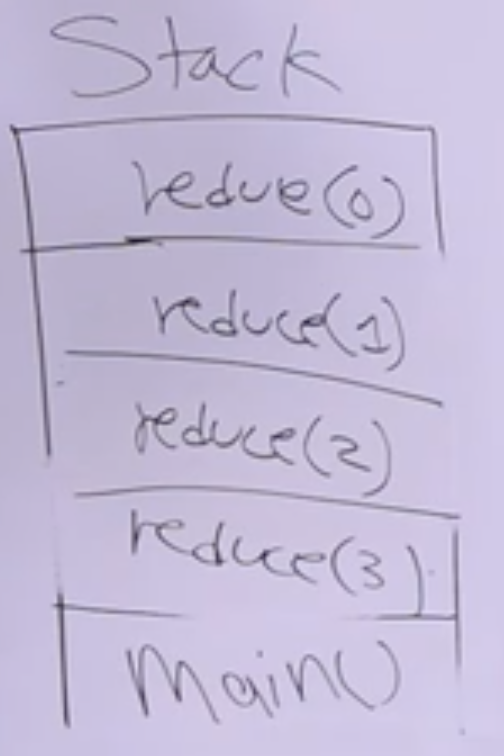 Stack
redue(0)
reduce(1)
reduce(2)
reduce(3)
Main()